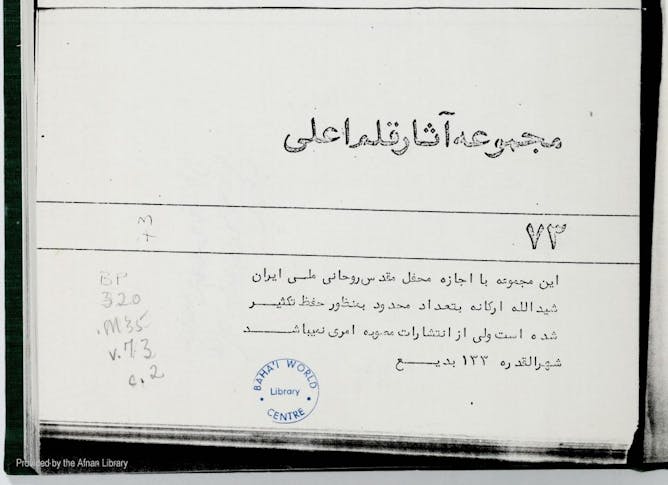 مجموعه آثار قلم اعلی
۷۳
این مجموعه با اجازه محفل مقدس روحانی ملی ایران
شیدالله ارکانه بتعداد محدود بمنظور حفظ تکثیر
شده است ولی از انتشارات مصوبه امری نمیباشد
شهرالقدره ۱۳۳ بدیع
BP
320
.M35
v.73
c.2
BAHA'I WORLD
Library
CENTRE
Provided by the Afnan Library